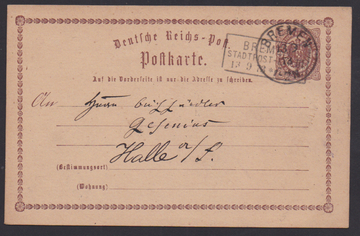 Deutsche Reichs-Post.
Postkarte.
Auf die Vorderseite ist nur die Adresse zu schreiben.
BREMEN
BREMEN
STADTPOST
An Herrn Buchhändler
Gesenius
Halle a/S.
(Bestimmungsort)
(Wohnung)